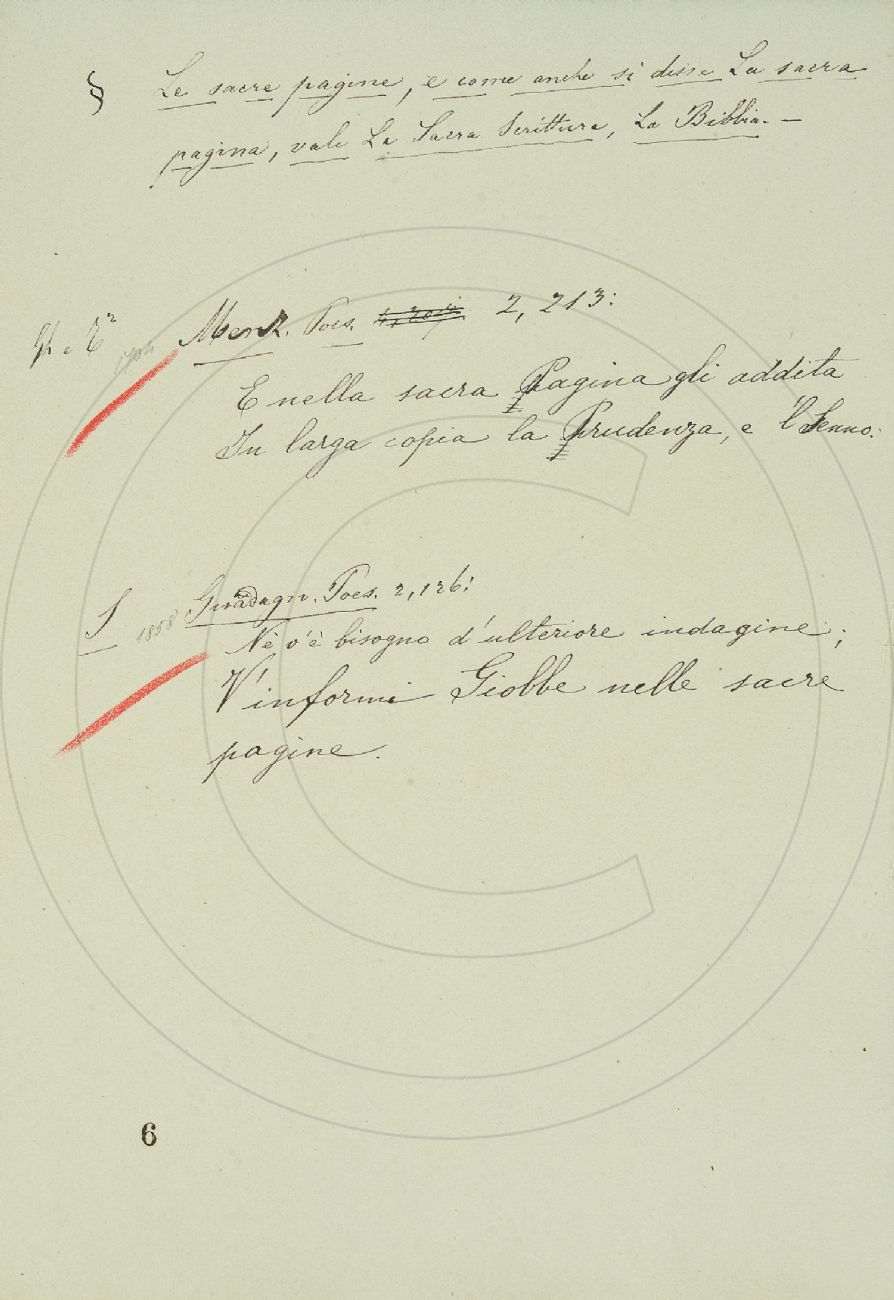 § Le sacre pagine, e come anche si disse La sacra
pagina, vale La Sacra Scrittura, La Bibbia. –
Menz. Poes. 2, 213:
E nella sacra Pagina gli addita
In larga copia la Prudenza, e 'l Senno.
S 1858 Guadagn. Poes. 2, 126:
Nè v'è bisogno d'ulteriore indagine;
V'informi Giobbe nelle sacre
pagine.
6